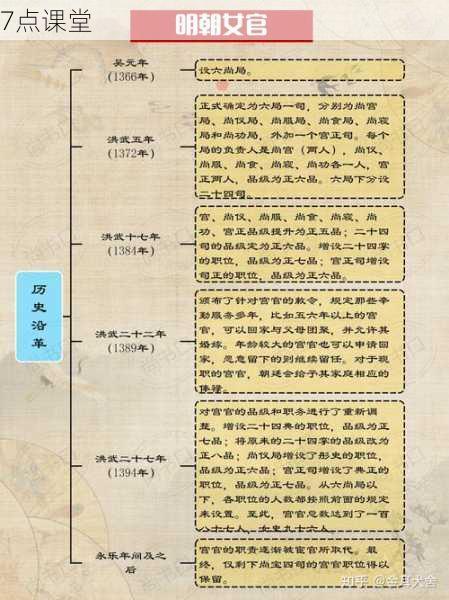 7点课堂
明朝女官
历史沿革
吴元年
(1366年)
设六尚局。
洪武五年
(1372年)
正式确定为六局一司，分别为尚宫
局、尚仪局、尚服局、尚食局、尚寝
局和尚功局，外加一个宫正司。每个
局的负责人是尚宫（两人），尚仪、
尚服、尚食、尚寝、尚功各一人，宫
正两人，品级为正六品。六局下分设
二十四司。
洪武十七年
(1384年)
宫、尚仪、尚服、尚食、尚寝、尚
功、宫正品级提升为正五品；二十四
司的品级定为正六品。增设二十四掌
的职位，品级为正七品；宫正司增设
司正的职位，品级为正六品。
洪武二十二年
(1389年)
颁布了针对宫官的敕令，规定那些辛
勤服务多年，比如五六年以上的宫
官，可以回家与父母团聚，并允许其
婚嫁。年龄较大的宫官也可以申请回
家，愿意留下的则继续留任。对于现
职的宫官，朝廷会给予其家庭相应的
俸禄。
洪武二十七年
(1394年)
对宫官的品级和职务进行了重新调
整。增设二十四典的职位，品级为正
七品；将原来的二十四掌的品级改为
正八品；尚仪局增设了彤史的职位，
品级为正六品；宫正司增设了典正的
职位，品级为正七品。从六尚局以
下，各职位的人数都按照前面的规定
来设置。至此，宫官总数达到了一百
八十七人，女史九十六人。
永乐年间及之
后
宫官的职责逐渐被宦官所取代。最
终，仅剩下尚宝四司的宫官职位得以
保留。